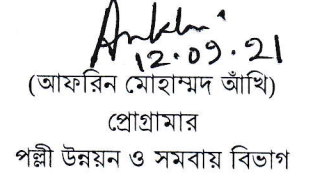 12.09.21
(আফরিন মোহাম্মদ আঁখি)
প্রোগ্রামার
পল্লী উন্নয়ন ও সমবায় বিভাগ